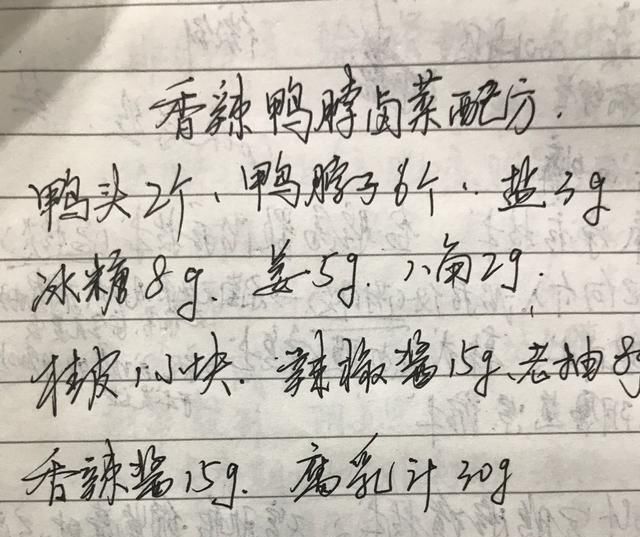 香辣鸭脖卤菜配方.
鸭头2个、鸭脖子6个、盐3g
冰糖8g. 姜5g. 八角2g.
桂皮1小块. 辣椒酱15g、老抽8g
香辣酱15g. 腐乳汁30g